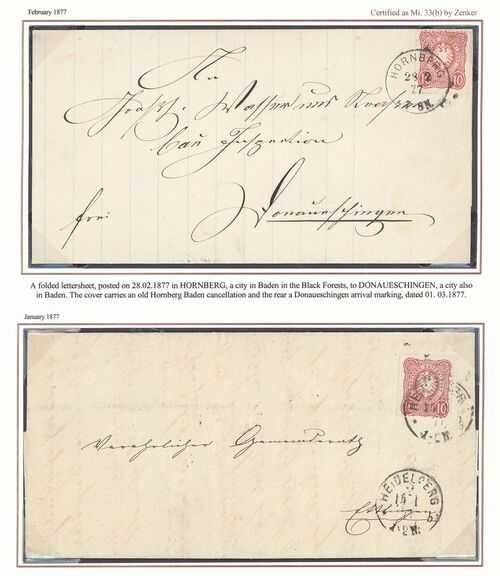 February 1877
Certified as Mi. 33(b) by Zenker
An
Grossh. Wasser und Strassen
Bau Inspection
frei
Donaueschingen
HORNBERG
28 2
77
7-8N.
10
A folded lettersheet, posted on 28.02.1877 in HORNBERG, a city in Baden in the Black Forests, to DONAUESCHINGEN, a city also
in Baden. The cover carries an old Hornberg Baden cancellation and the rear a Donaueschingen arrival marking, dated 01. 03.1877.
January 1877
10
Verehrlicher Gemeinderath
HEIDELBERG
Ettlingen